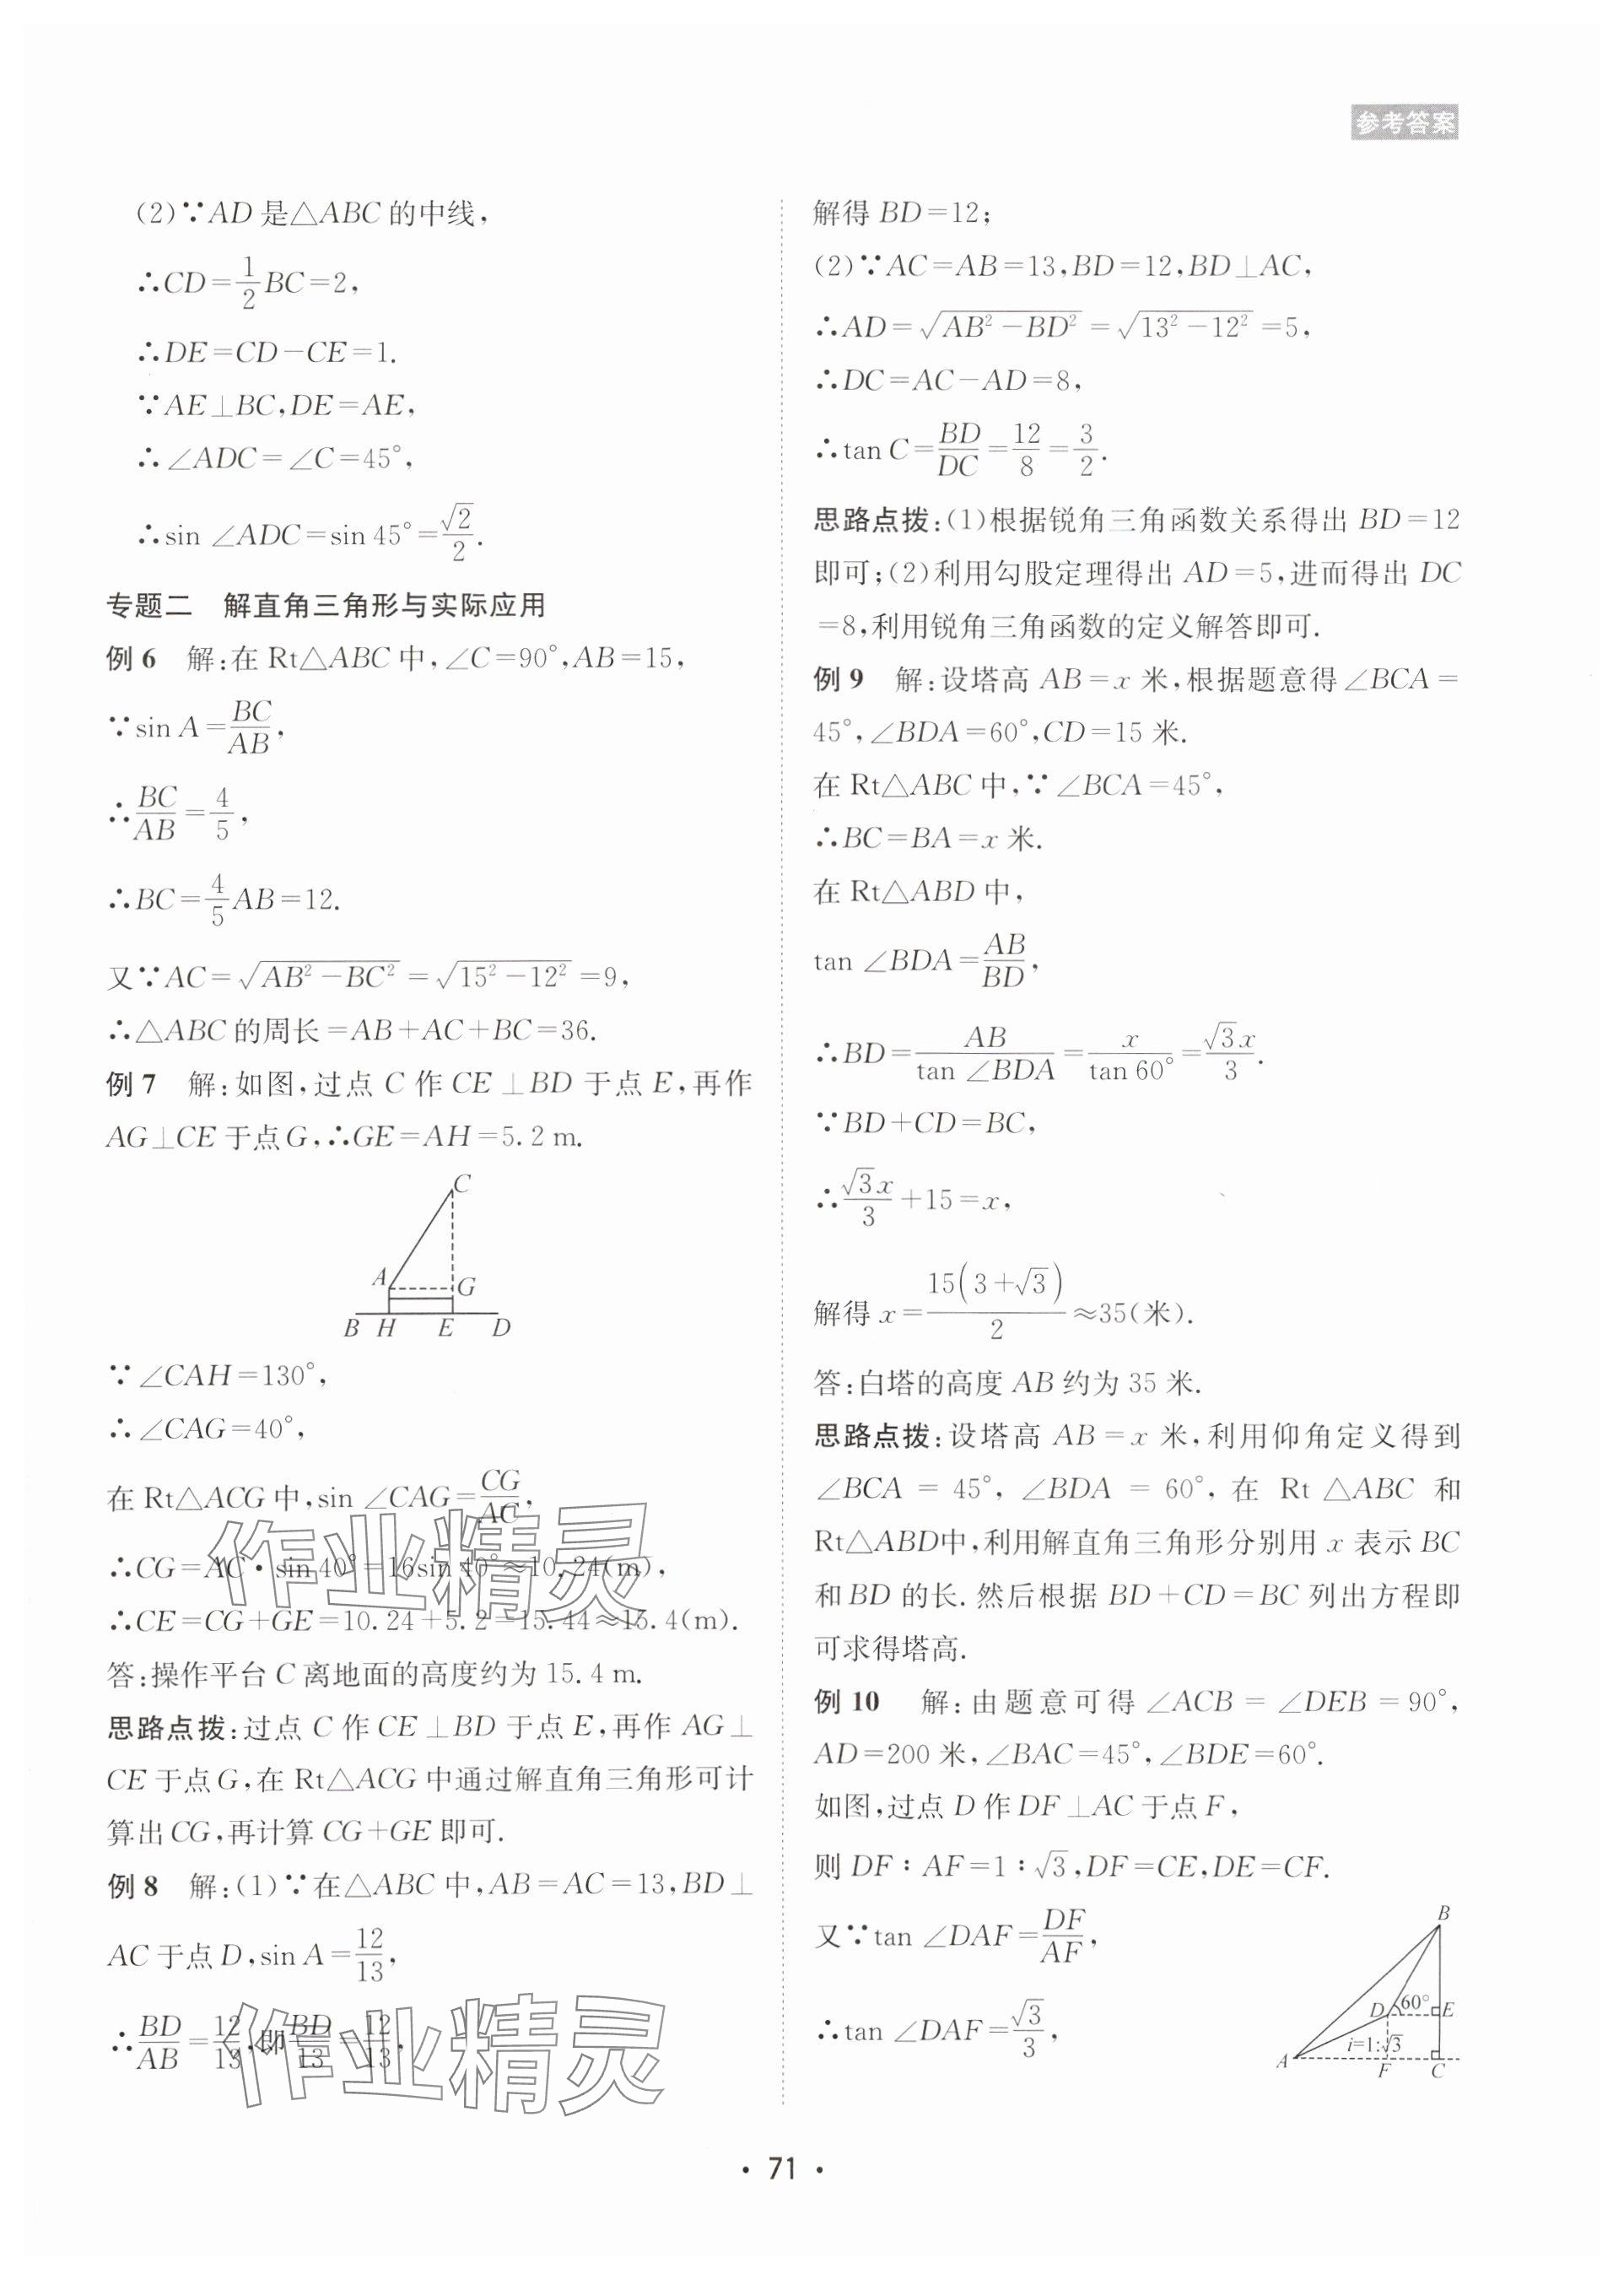 参考答案
(2)∵AD是△ABC的中线,
∴CD=1/2 BC=2,
∴DE=CD-CE=1.
∵AE⊥BC,DE=AE,
∴∠ADC=∠C=45°,
∴sin ∠ADC=sin 45°=√2/2.
专题二 解直角三角形与实际应用
例6 解:在Rt△ABC中,∠C=90°,AB=15,
∵sin A=BC/AB,
∴BC/AB=4/5,
∴BC=4/5 AB=12.
又∵AC=√(AB²-BC²)=√(15²-12²)=9,
∴△ABC的周长=AB+AC+BC=36.
例7 解:如图,过点C作CE⊥BD于点E,再作
AG⊥CE于点G,∴GE=AH=5.2 m.
C
A
G
B H E D
∵∠CAH=130°,
∴∠CAG=40°,
在Rt△ACG中,sin ∠CAG=CG/AC,
∴CG=AC·sin 40°=16sin 40°≈10.24(m),
∴CE=CG+GE=10.24+5.2=15.44≈15.4(m).
答:操作平台C离地面的高度约为15.4 m.
思路点拨:过点C作CE⊥BD于点E,再作AG⊥
CE于点G,在Rt△ACG中通过解直角三角形可计
算出CG,再计算CG+GE即可.
例8 解:(1)∵在△ABC中,AB=AC=13,BD⊥
AC于点D,sin A=12/13,
∴BD/AB=12/13,即BD/13=12/13,
作业精灵
作业精灵
解得BD=12;
(2)∵AC=AB=13,BD=12,BD⊥AC,
∴AD=√(AB²-BD²)=√(13²-12²)=5,
∴DC=AC-AD=8,
∴tan C=BD/DC=12/8=3/2.
思路点拨:(1)根据锐角三角函数关系得出BD=12
即可;(2)利用勾股定理得出AD=5,进而得出DC
=8,利用锐角三角函数的定义解答即可.
例9 解:设塔高AB=x米,根据题意得∠BCA=
45°,∠BDA=60°,CD=15米.
在Rt△ABC中,∵∠BCA=45°,
∴BC=BA=x米.
在Rt△ABD中,
tan ∠BDA=AB/BD,
∴BD=AB/tan ∠BDA=x/tan 60°=√3x/3.
∵BD+CD=BC,
∴√3x/3+15=x,
解得x=15(3+√3)/2≈35(米).
答:白塔的高度AB约为35米.
思路点拨:设塔高AB=x米,利用仰角定义得到
∠BCA=45°,∠BDA=60°,在Rt△ABC和
Rt△ABD中,利用解直角三角形分别用x表示BC
和BD的长.然后根据BD+CD=BC列出方程即
可求得塔高.
例10 解:由题意可得∠ACB=∠DEB=90°,
AD=200米,∠BAC=45°,∠BDE=60°.
如图,过点D作DF⊥AC于点F,
则DF∶AF=1∶√3,DF=CE,DE=CF.
又∵tan ∠DAF=DF/AF,
∴tan ∠DAF=√3/3,
B
D 60° E
i=1:√3
A F C
·71·